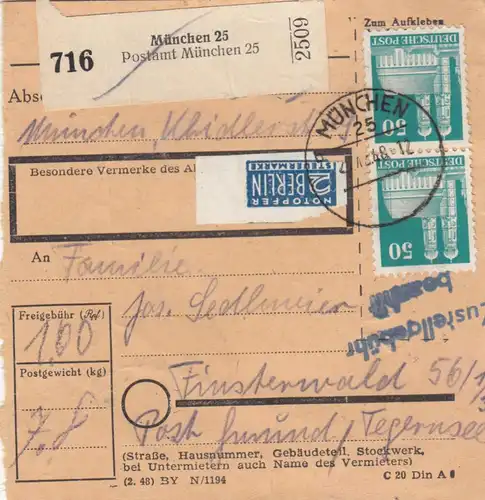 716
München 25
Postamt München 25
2509
Zum Aufkleben
DEUTSCHE POST
50
Abse
München,
MÜNCHEN
25 09
48-12
DEUTSCHE POST
50
Besondere Vermerke des Al
NOTOPFER
2 BERLIN
STEUERMARKE
An Familie
Jos. Sedlmeier
Freigebühr (Rpf)
1,60
Zustellgebühr
bezahlt
Postgewicht (kg)
7,8
Finsterwald 56/1
Post Gmund/Tegernsee
(Straße, Hausnummer, Gebäudeteil, Stockwerk,
bei Untermietern auch Name des Vermieters)
(2. 48) BY N/1194
C 20 Din A